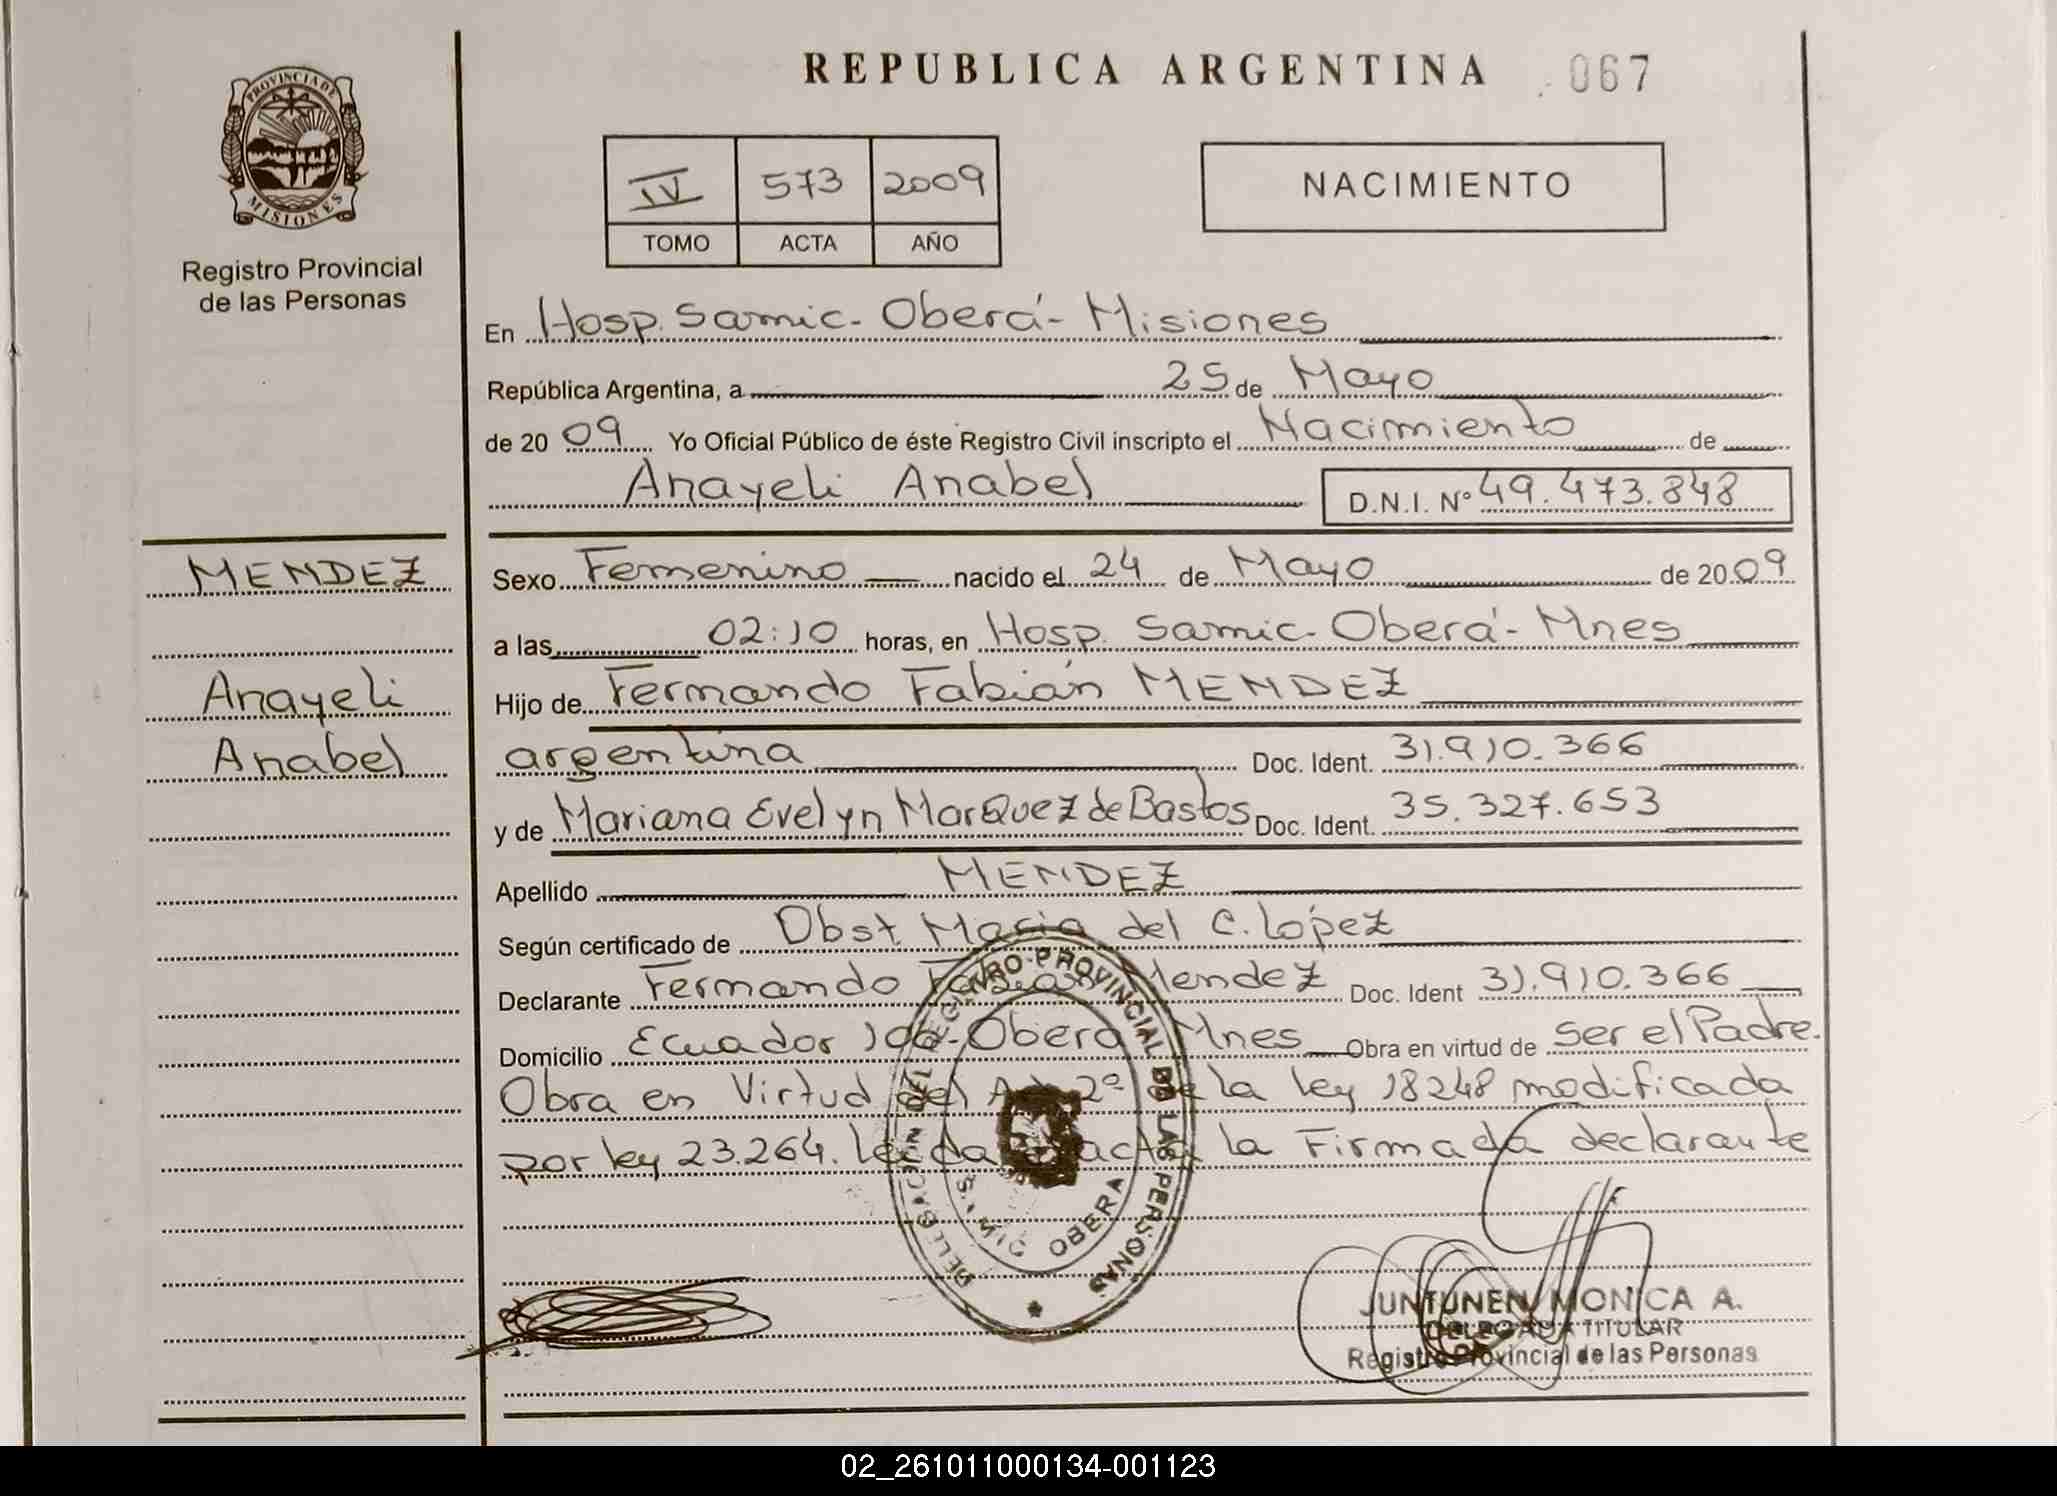 REPUBLICA ARGENTINA 067
PROVINCIA DE
MISIONES
Registro Provincial
de las Personas
IV 573 2009
TOMO ACTA AÑO
NACIMIENTO
En Hosp. Samic - Oberá - Misiones
República Argentina, a 25 de Mayo
de 20 09 Yo Oficial Público de éste Registro Civil inscripto el Nacimiento de
Anayeli Anabel D.N.I. Nº 49.473.848
MENDEZ
Anayeli
Anabel
Sexo Femenino nacido el 24 de Mayo de 20 09
a las 02:10 horas, en Hosp. Samic - Oberá - Mnes
Hijo de Fernando Fabián MENDEZ
argentina Doc. Ident. 31.910.366
y de Mariana Evelyn MarQuez de Bastos Doc. Ident. 35.327.653
Apellido MENDEZ
Según certificado de Obst Maria del C. López
Declarante Fernando Fabián Mendez Doc. Ident 31.910.366
Domicilio Ecuador Oberá Mnes Obra en virtud de Ser el Padre.
Obra en Virtud del Art 2º de la ley 18248 modificada
por ley 23.264. Leída acta la Firma declarante
DELEGACION DEL REGISTRO PROVINCIAL DE LAS PERSONAS
OBERA
JUNTUNEN MONICA A.
DELEGADA TITULAR
Registro Provincial de las Personas
02_261011000134-001123